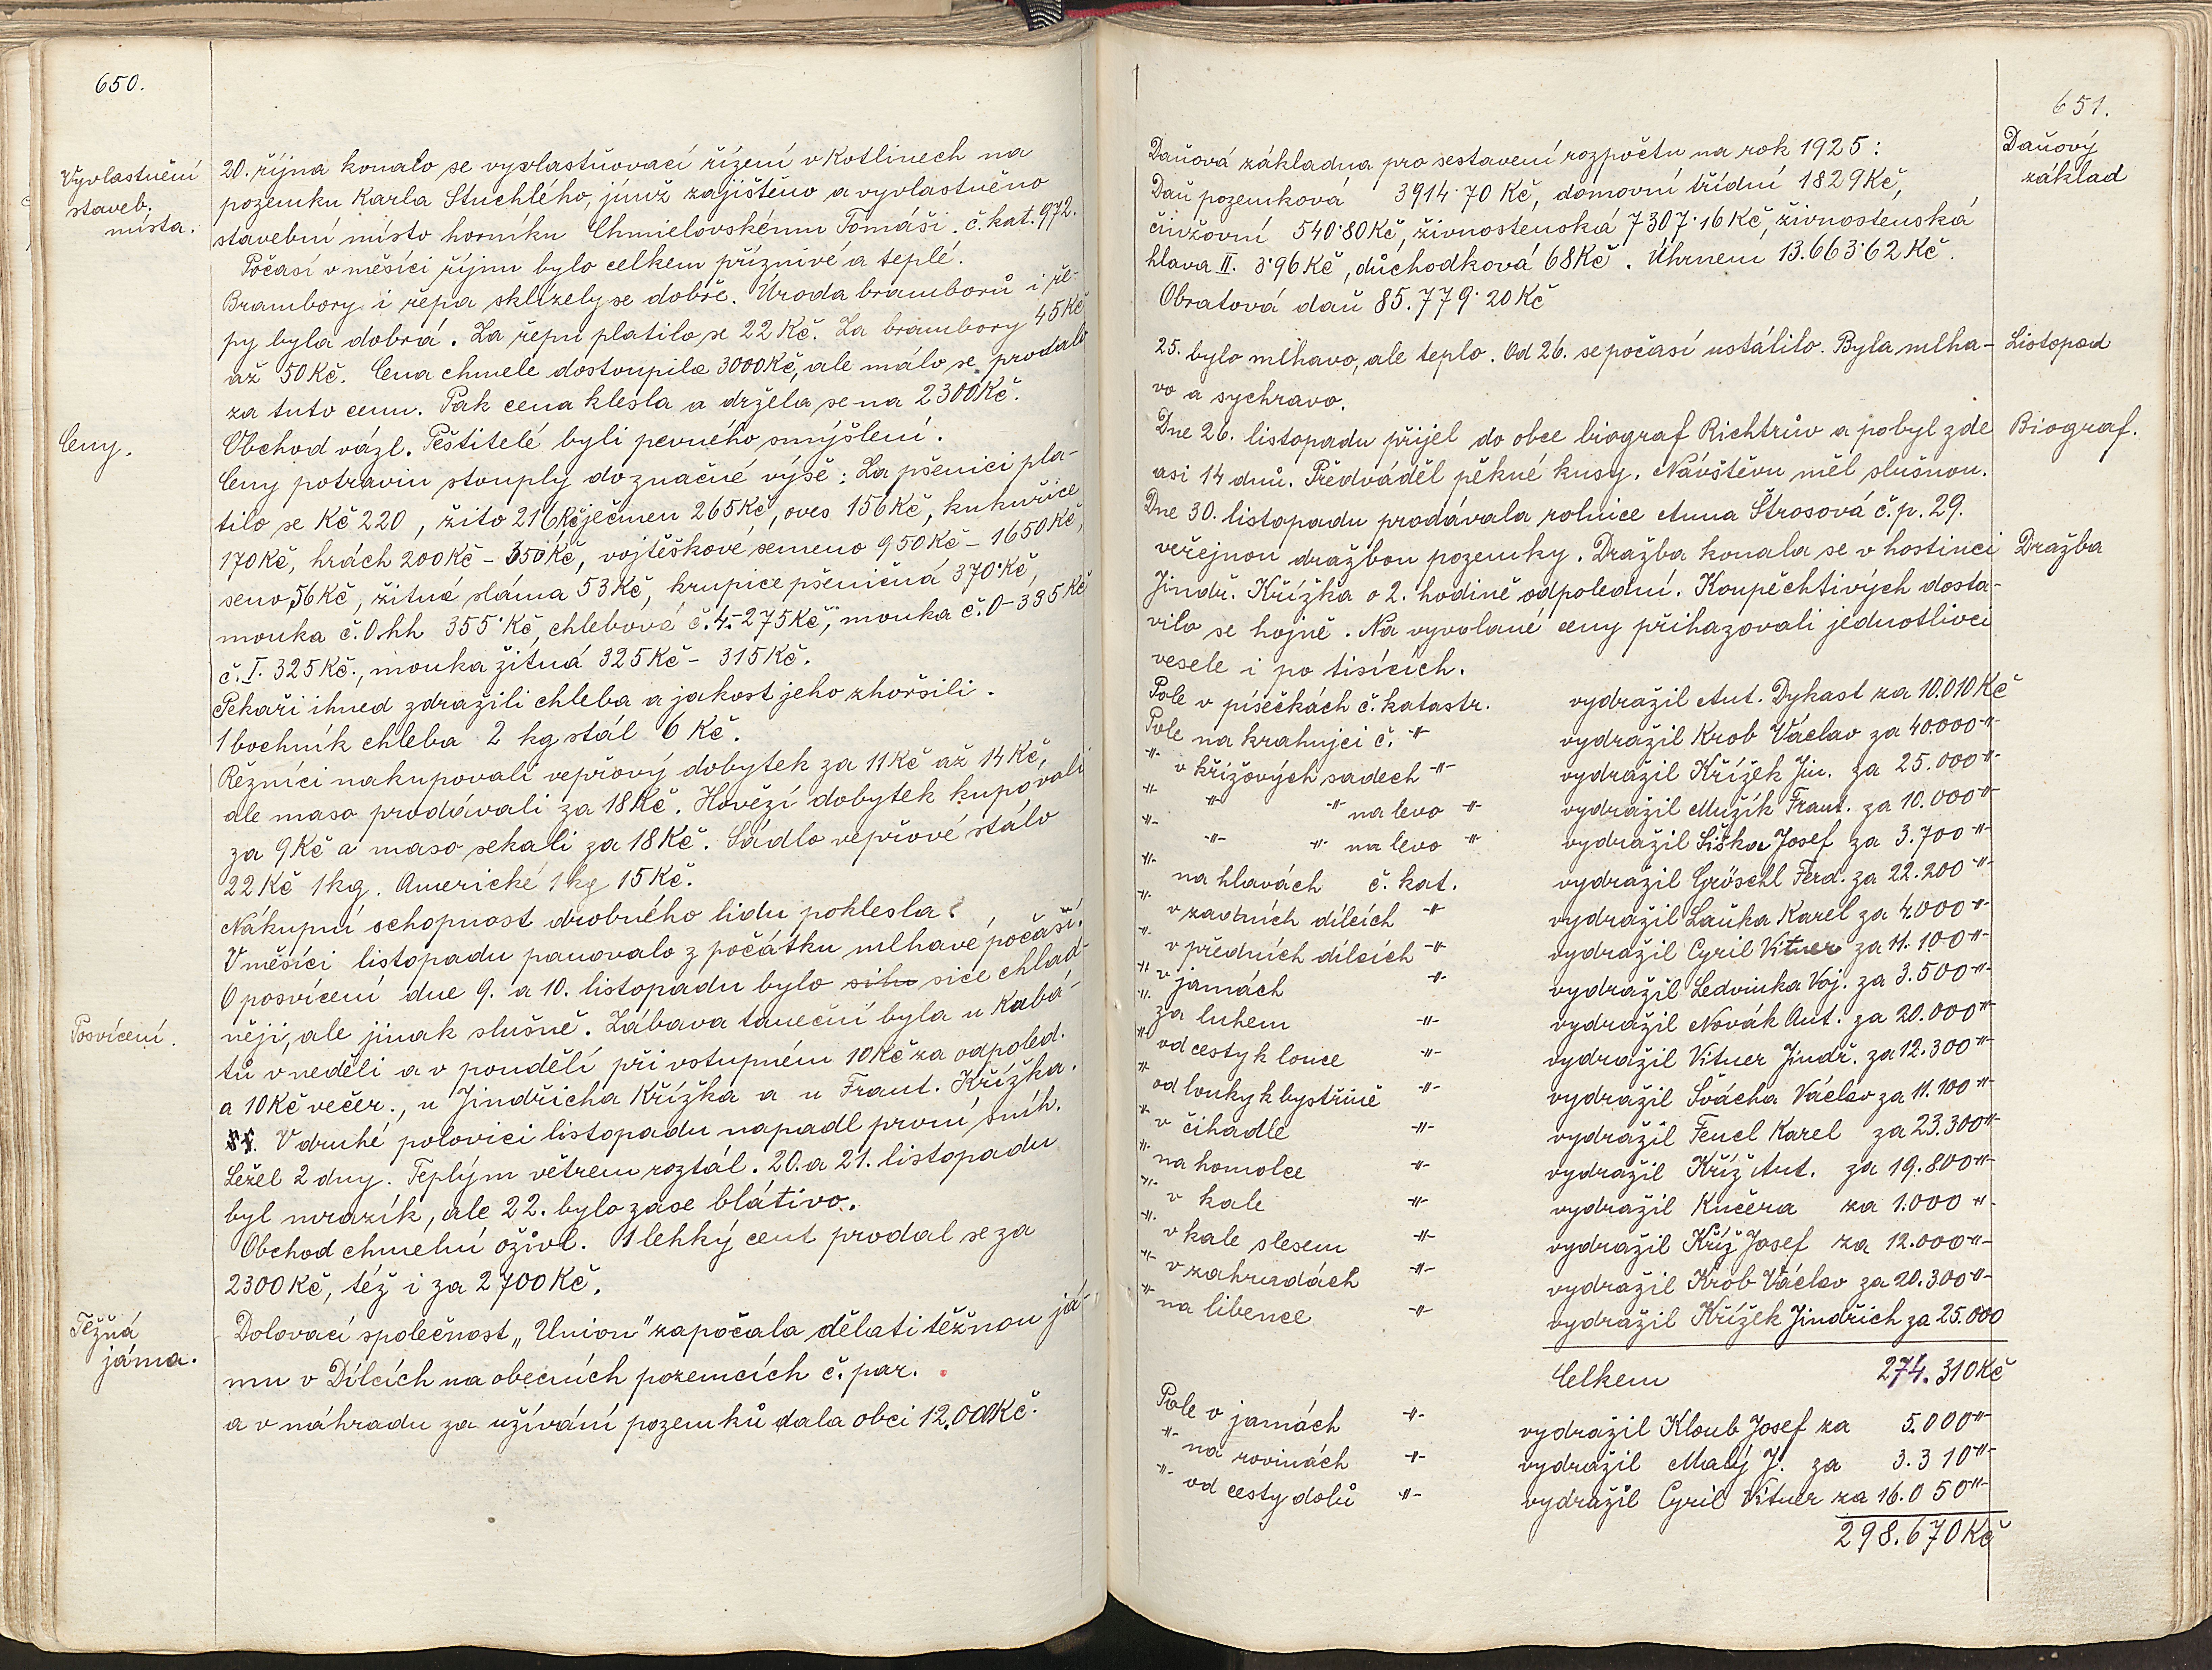 650.
Vyvlastnění
staveb.
místa.
20. října konalo se vyvlastňovací řízení v Kotlinech na
pozemku Karla Stuchlého, jímž zajištěno a vyvlastněno
stavební místo horníku Chmielovskému Tomáši. č. kat. 972.
Počasí v měsíci říjnu bylo celkem příznivé a teplé.
Brambory i řepa sklízely se dobře. Úroda bramborů i ře-
py byla dobrá. Za řepu platilo se 22 Kč. Za brambory 45 Kč
až 50 Kč. Cena chmele dostoupila 3000 Kč, ale málo se prodalo
za tuto cenu. Pak cena klesla a držela se na 2300 Kč.
Obchod vázl. Pěstitelé byli pevného smýšlení.
Ceny.
Ceny potravin stouply do značné výše: Za pšenici pla-
tilo se Kč 220, žito 216 Kč ječmen 265 Kč, oves 156 Kč, kukuřice
170 Kč, hrách 200 Kč - 350 Kč, vojtěškové semeno 950 Kč - 1650 Kč,
seno 56 Kč, žitná sláma 53 Kč, krupice pšeničná 370 Kč,
mouka č. 0.hh 355 Kč, chlebová č. 4.- 275 Kč, mouka č. 0 - 335 Kč
č. I. 325 Kč., mouka žitná 325 Kč - 315 Kč.
Pekaři ihned zdražili chleba a jakost jeho zhoršili.
1 bochník chleba 2 kg stál 6 Kč.
Řezníci nakupovali vepřový dobytek za 11 Kč až 14 Kč,
ale maso prodávali za 18 Kč. Hovězí dobytek kupovali
za 9 Kč a maso sekali za 18 Kč. Sádlo vepřové stálo
22 Kč 1 kg. Americké 1 kg 15 Kč.
Nákupní schopnost drobného lidu poklesla.
V měsíci listopadu panovalo z počátku mlhavé počasí.
Posvícení.
O posvícení dne 9. a 10. listopadu bylo sice chlad-
něji, ale jinak slušně. Zábava taneční byla u Kabá-
tů v neděli a v pondělí při vstupném 10 Kč za odpoled.
a 10 Kč večer., u Jindřicha Křížka a u Frant. Křížka.
V druhé polovici listopadu napadl první sníh.
Ležel 2 dny. Teplým větrem roztál. 20. a 21. listopadu
byl mrazík, ale 22. bylo zase blátivo.
Obchod chmelní oživl. 1 lehký cent prodal se za
2300 Kč, též i za 2700 Kč.
Těžná
jáma.
Dolovací společnost „Union" započala dělati těžnou já-
mu v Dílcích na obecních pozemcích č. par.
a v náhradu za užívání pozemků dala obci 12.000 Kč.
651.
Daňový
základ
Daňová základna pro sestavení rozpočtu na rok 1925:
Daň pozemková 3914·70 Kč, domovní třídní 1829 Kč,
činžovní 540·80 Kč, živnostenská 7307·16 Kč, živnostenská
hlava II. 3·96 Kč, důchodková 68 Kč. Úhrnem 13.663·62 Kč.
Obratová daň 85.779·20 Kč
Listopad
25. bylo mlhavo, ale teplo. Od 26. se počasí ustálilo. Byla mlha-
vo a sychravo.
Biograf.
Dne 26. listopadu přijel do obce biograf Richtrův a pobyl zde
asi 14 dnů. Předváděl pěkné kusy. Návštěvu měl slušnou.
Dne 30. listopadu prodávala rolnice Anna Štrosová č. p. 29.
Dražba
veřejnou dražbou pozemky. Dražba konala se v hostinci
Jindř. Křížka o 2. hodině odpolední. Koupěchtivých dosta-
vilo se hojně. Na vyvolané ceny přihazovali jednotlivci
vesele i po tisících.
Pole v písečkách č. katastr. vydražil Ant. Dykast za 10.010 Kč
Pole na krahujci č. -"- vydražil Krob Václav za 40.000 -"-
-"- v křížových sadech -"- vydražil Křížek Jin. za 25.000 -"-
-"- -"- -"- na levo -"- vydražil Mužík Frant. za 10.000 -"-
-"- -"- -"- na levo -"- vydražil Šiška Josef za 3.700 -"-
-"- na hlavách č. kat. vydražil Gröschl Ferd. za 22.200 -"-
-"- v zadních dílcích -"- vydražil Laňka Karel za 4.000 -"-
-"- v předních dílcích -"- vydražil Cyril Vitner za 11.100 -"-
-"- v jamách -"- vydražil Ledvinka Voj. za 3.500 -"-
-"- za luhem -"- vydražil Novák Ant. za 20.000 -"-
-"- od cesty k louce -"- vydražil Vitner Jindř. za 12.300 -"-
-"- od louky k bystřině -"- vydražil Švácha Václav za 11.100 -"-
-"- v čihadle -"- vydražil Fencl Karel za 23.300 -"-
-"- na homolce -"- vydražil Kříž Ant. za 19.800 -"-
-"- v kale -"- vydražil Kučera za 1.000 -"-
-"- v kale s lesem -"- vydražil Kříž Josef za 12.000 -"-
-"- v zahradách -"- vydražil Krob Václav za 20.300 -"-
-"- na libence -"- vydražil Křížek Jindřich za 25.000
Celkem 274.310 Kč
Pole v jamách -"- vydražil Kloub Josef za 5.000 -"-
-"- na rovinách -"- vydražil Malý J. za 3.310 -"-
-"- od cesty dolů -"- vydražil Cyril Vitner za 16.050 -"-
298.670 Kč